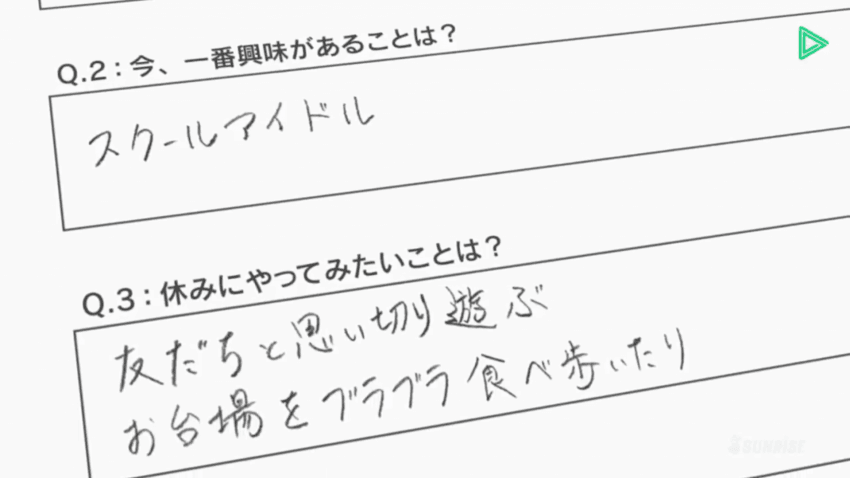 Q.2：今、一番興味があることは？
スクールアイドル
Q.3：休みにやってみたいことは？
友だちと思い切り遊ぶ
お台場をブラブラ食べ歩いたり
SUNRISE